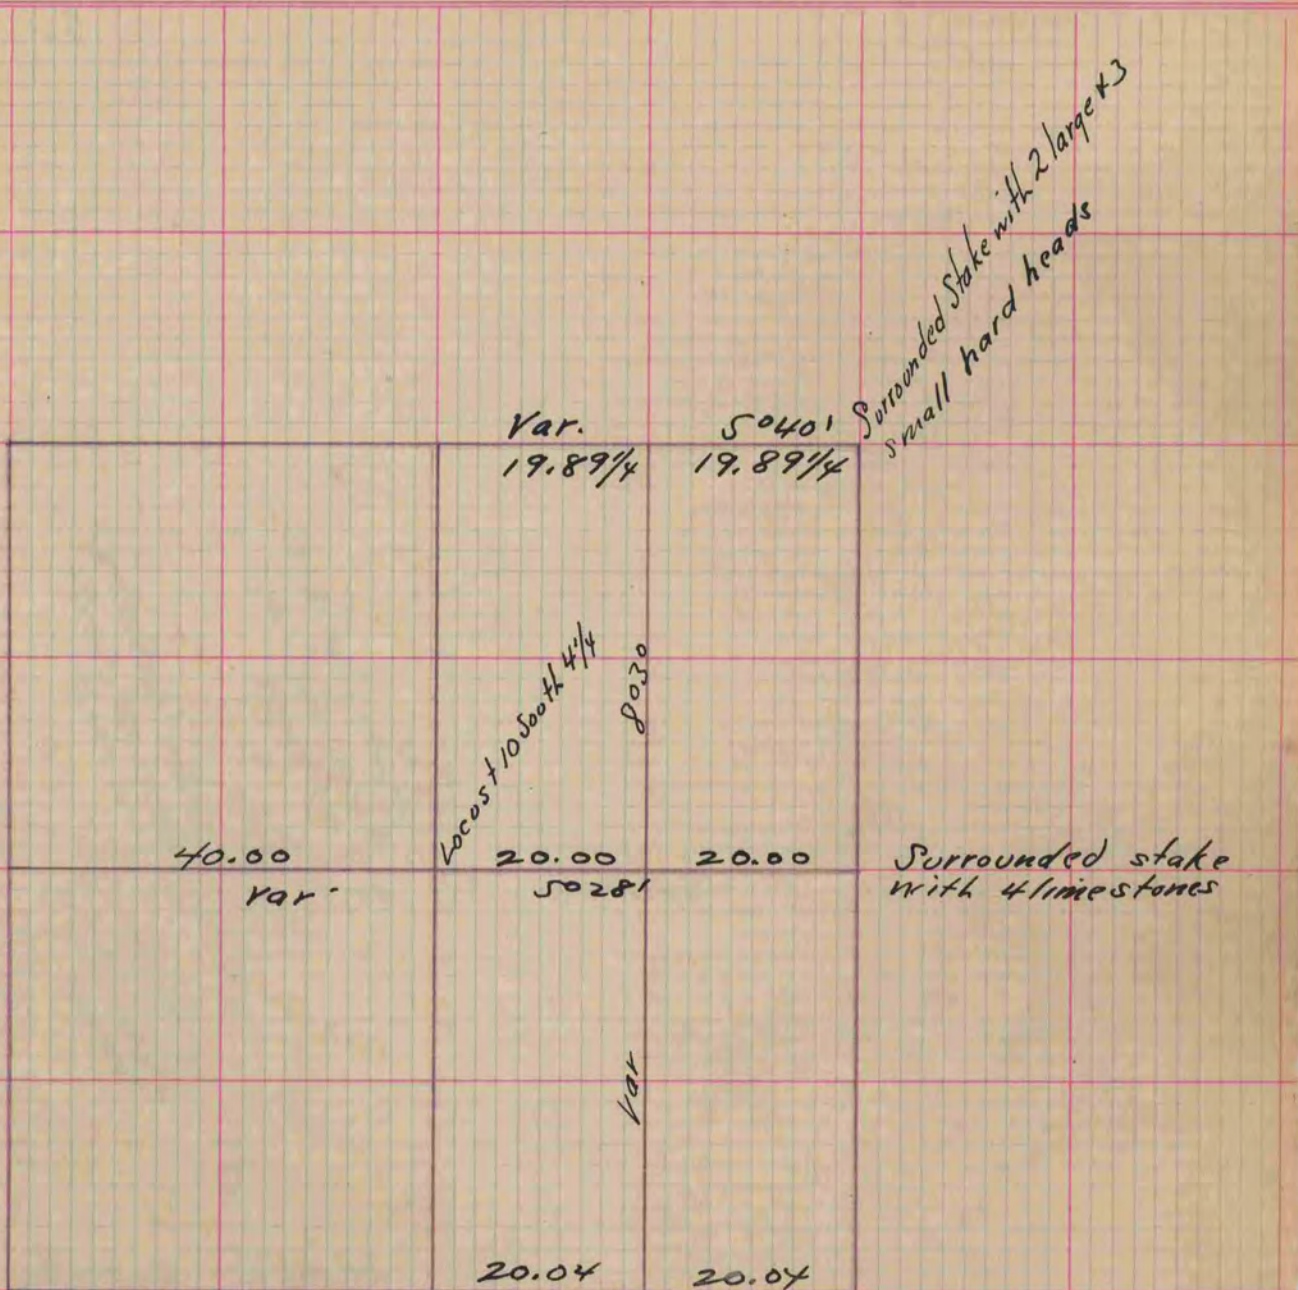 Surrounded Stake with 2 large & 3
small hard heads
Var. 5°40'
19.89¼ 19.89¼
Locost 10 South 4¼
8°30
40.00 20.00 20.00 Surrounded stake
var. 5°28' with 4 limestones
Var
20.04 20.04